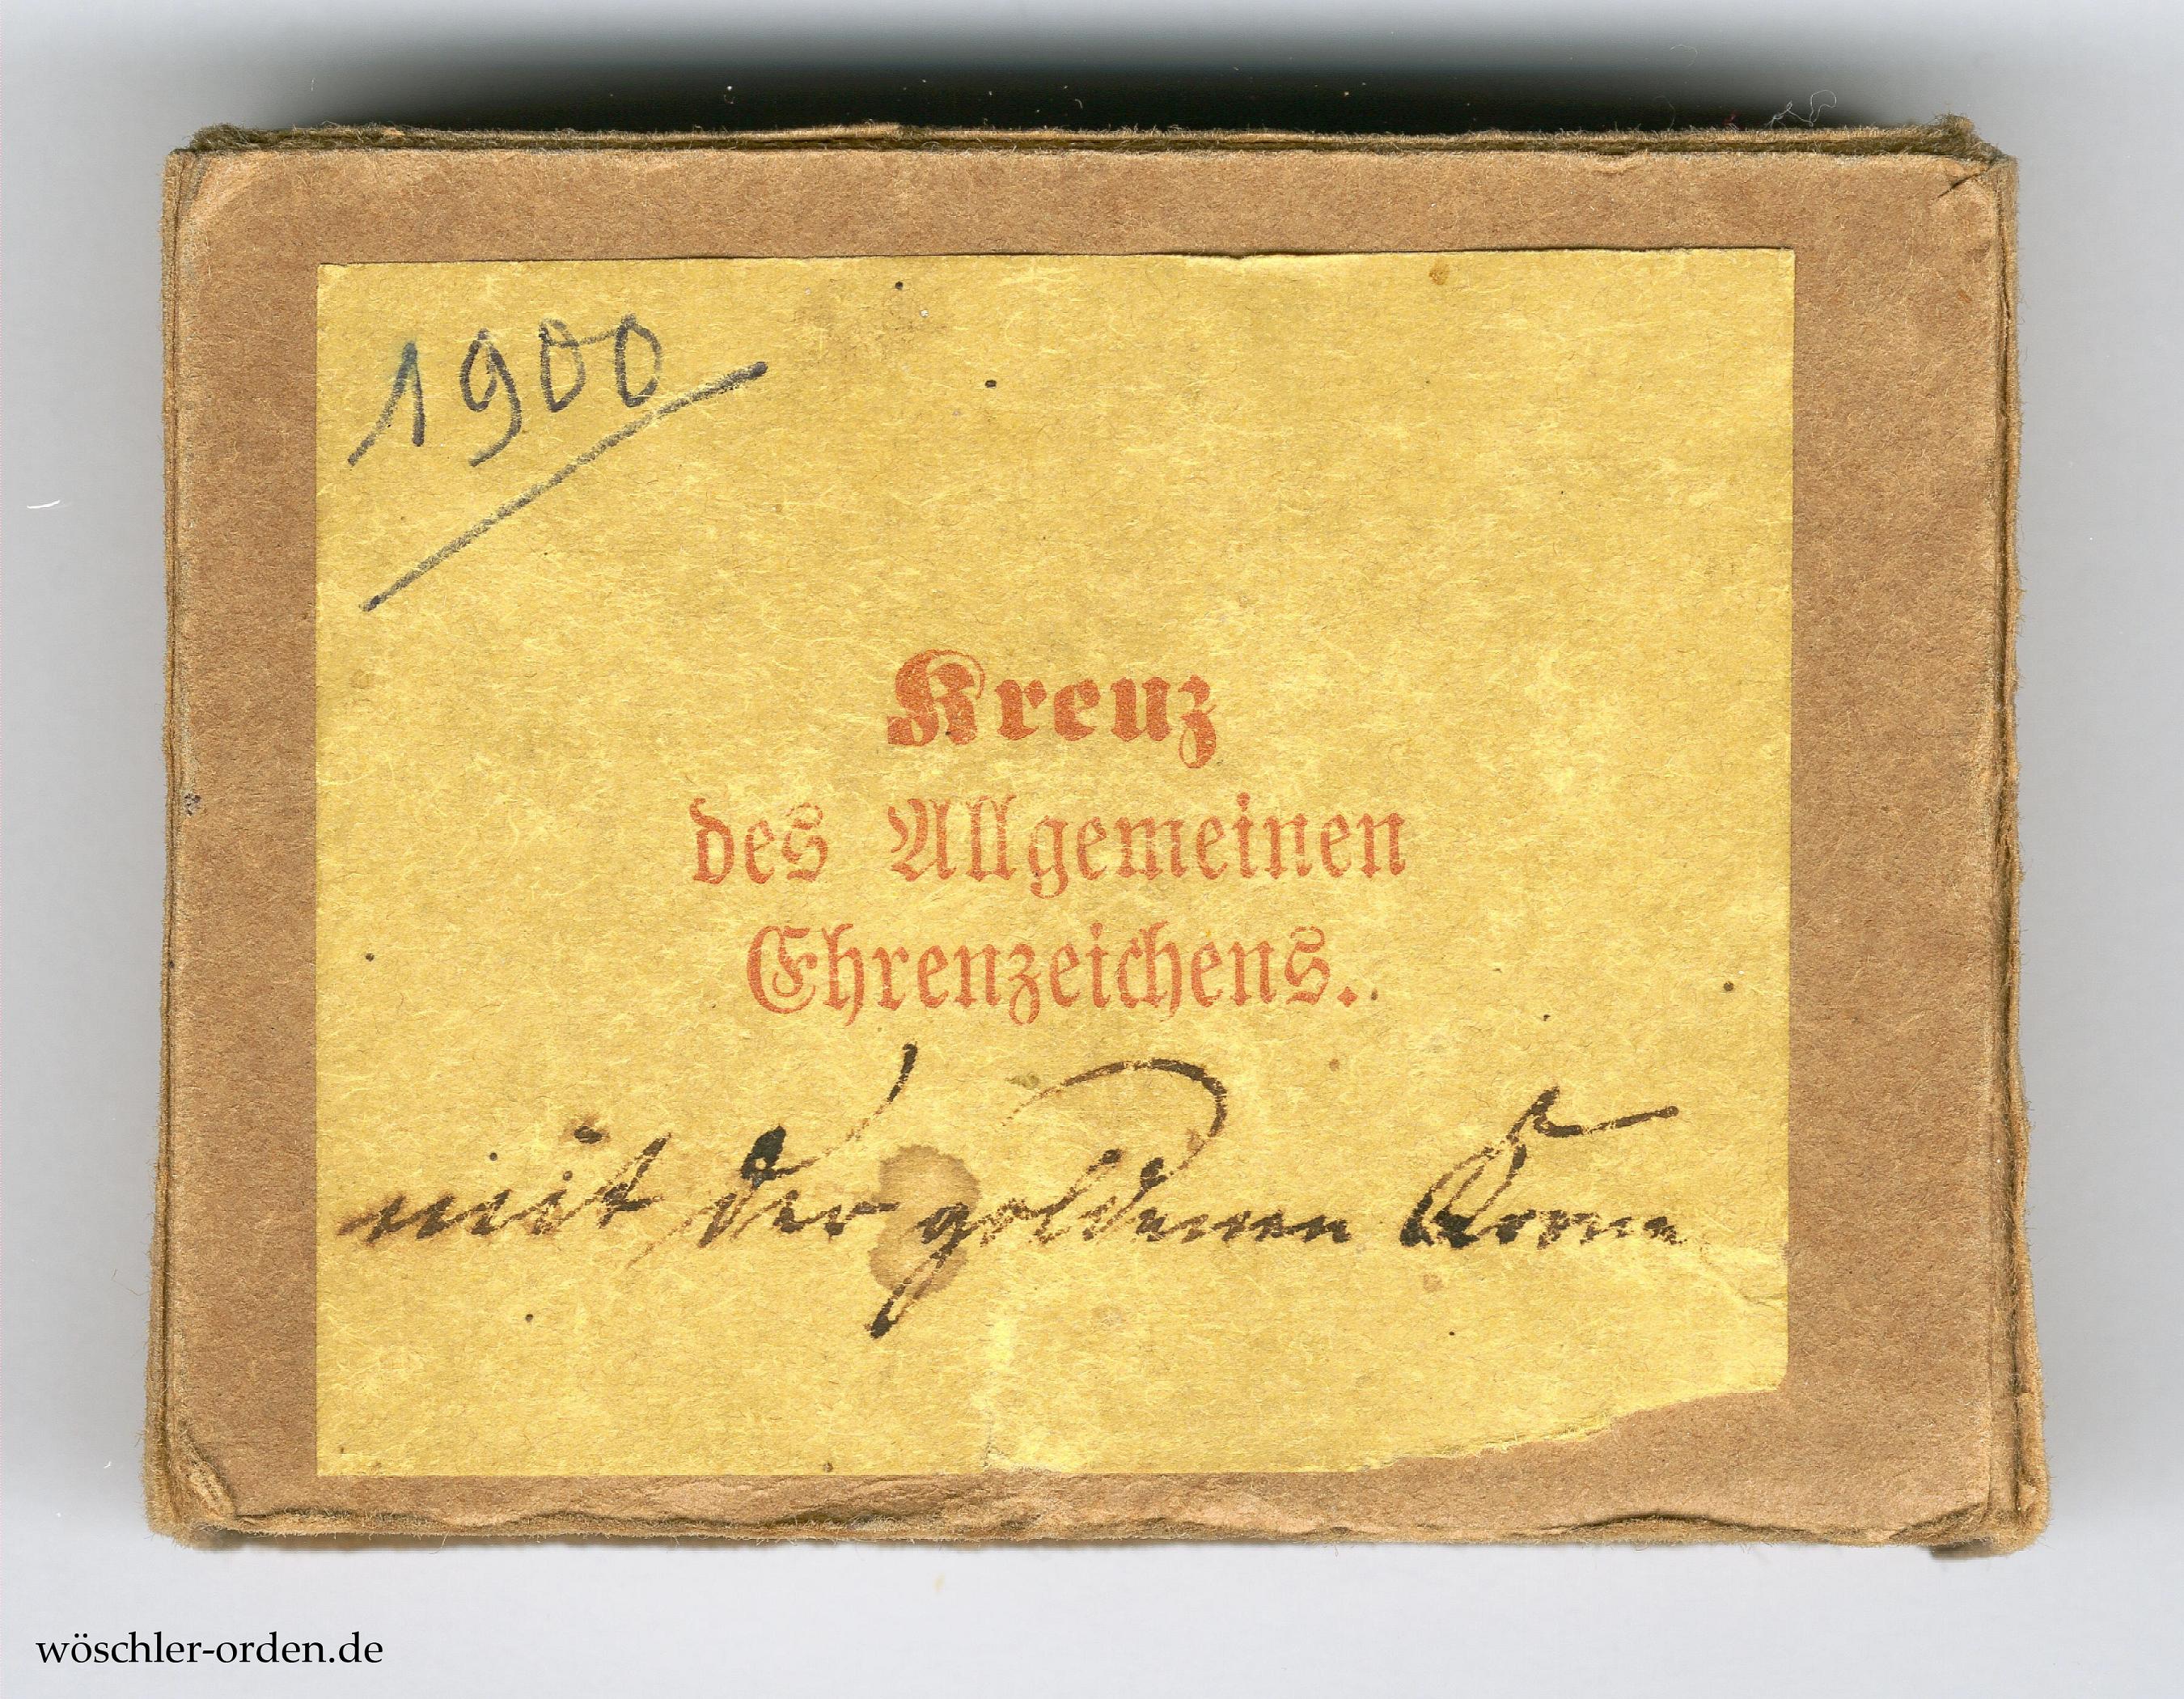 1900
Kreuz
des Allgemeinen
Ehrenzeichens.
mit der goldenen Krone
wöschler-orden.de